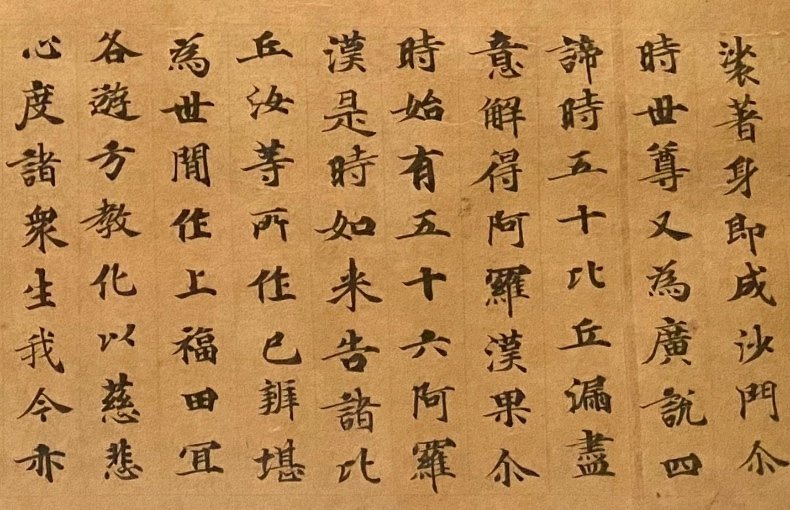 裟著身即成沙門尒
時世尊又為廣說四
諦時五十比丘漏盡
意解得阿羅漢果尒
時始有五十六阿羅
漢是時如来告諸比
丘汝等所作已辨堪
為世間作上福田冝
各遊方教化以慈悲
心度諸衆生我今亦